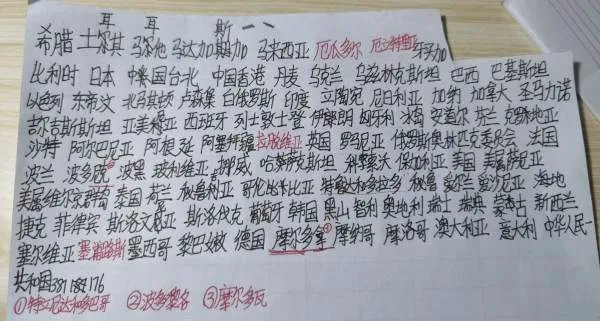 耳 耳 斯一一
希腊 土尔其 马尔他 马达加期加 马来西亚 厄瓜多尔 厄立特里亚 牙买加
比利时 日本 中国台北 中国香港 丹麦 乌克兰 乌兹林克斯坦 巴西 巴基斯坦
以色列 东帝文 北马其顿 卢森堡 白俄罗斯 印度 立陶宛 尼日利亚 加纳 加拿大 圣马力诺
吉尔吉斯斯坦 亚美尼亚 西班牙 列士敦士登 伊朗 匈牙利 冰岛 安道尔 芬兰 克罗地亚
沙特 阿尔巴尼亚 阿根廷 阿塞拜疆 拉脱维亚 英国 罗马尼亚 俄罗斯奥林匹克委员会 法国
波兰 波多 波黑 玻利维亚 挪威 哈萨克斯坦 科索沃 保加利亚 美国 美属萨尼亚
美属维尔京群岛 泰国 荷兰 秘鲁利亚 哥伦比亚 特立尼和多拉多 秘鲁 爱尔兰 爱沙尼亚 海地
捷克 菲律宾 斯洛文尼亚 斯洛伐克 葡萄牙 韩国 黑山 智利 奥地利 瑞士 瑞典 蒙古 新西兰
塞尔维亚 塞浦路斯 墨西哥 黎巴嫩 德国 摩尔多拿① 摩纳哥 摩洛哥 澳大利亚 意大利 中华人民一
共和国 387 188 176
①特立尼达和多巴哥 ②波多黎各 ③摩尔多瓦